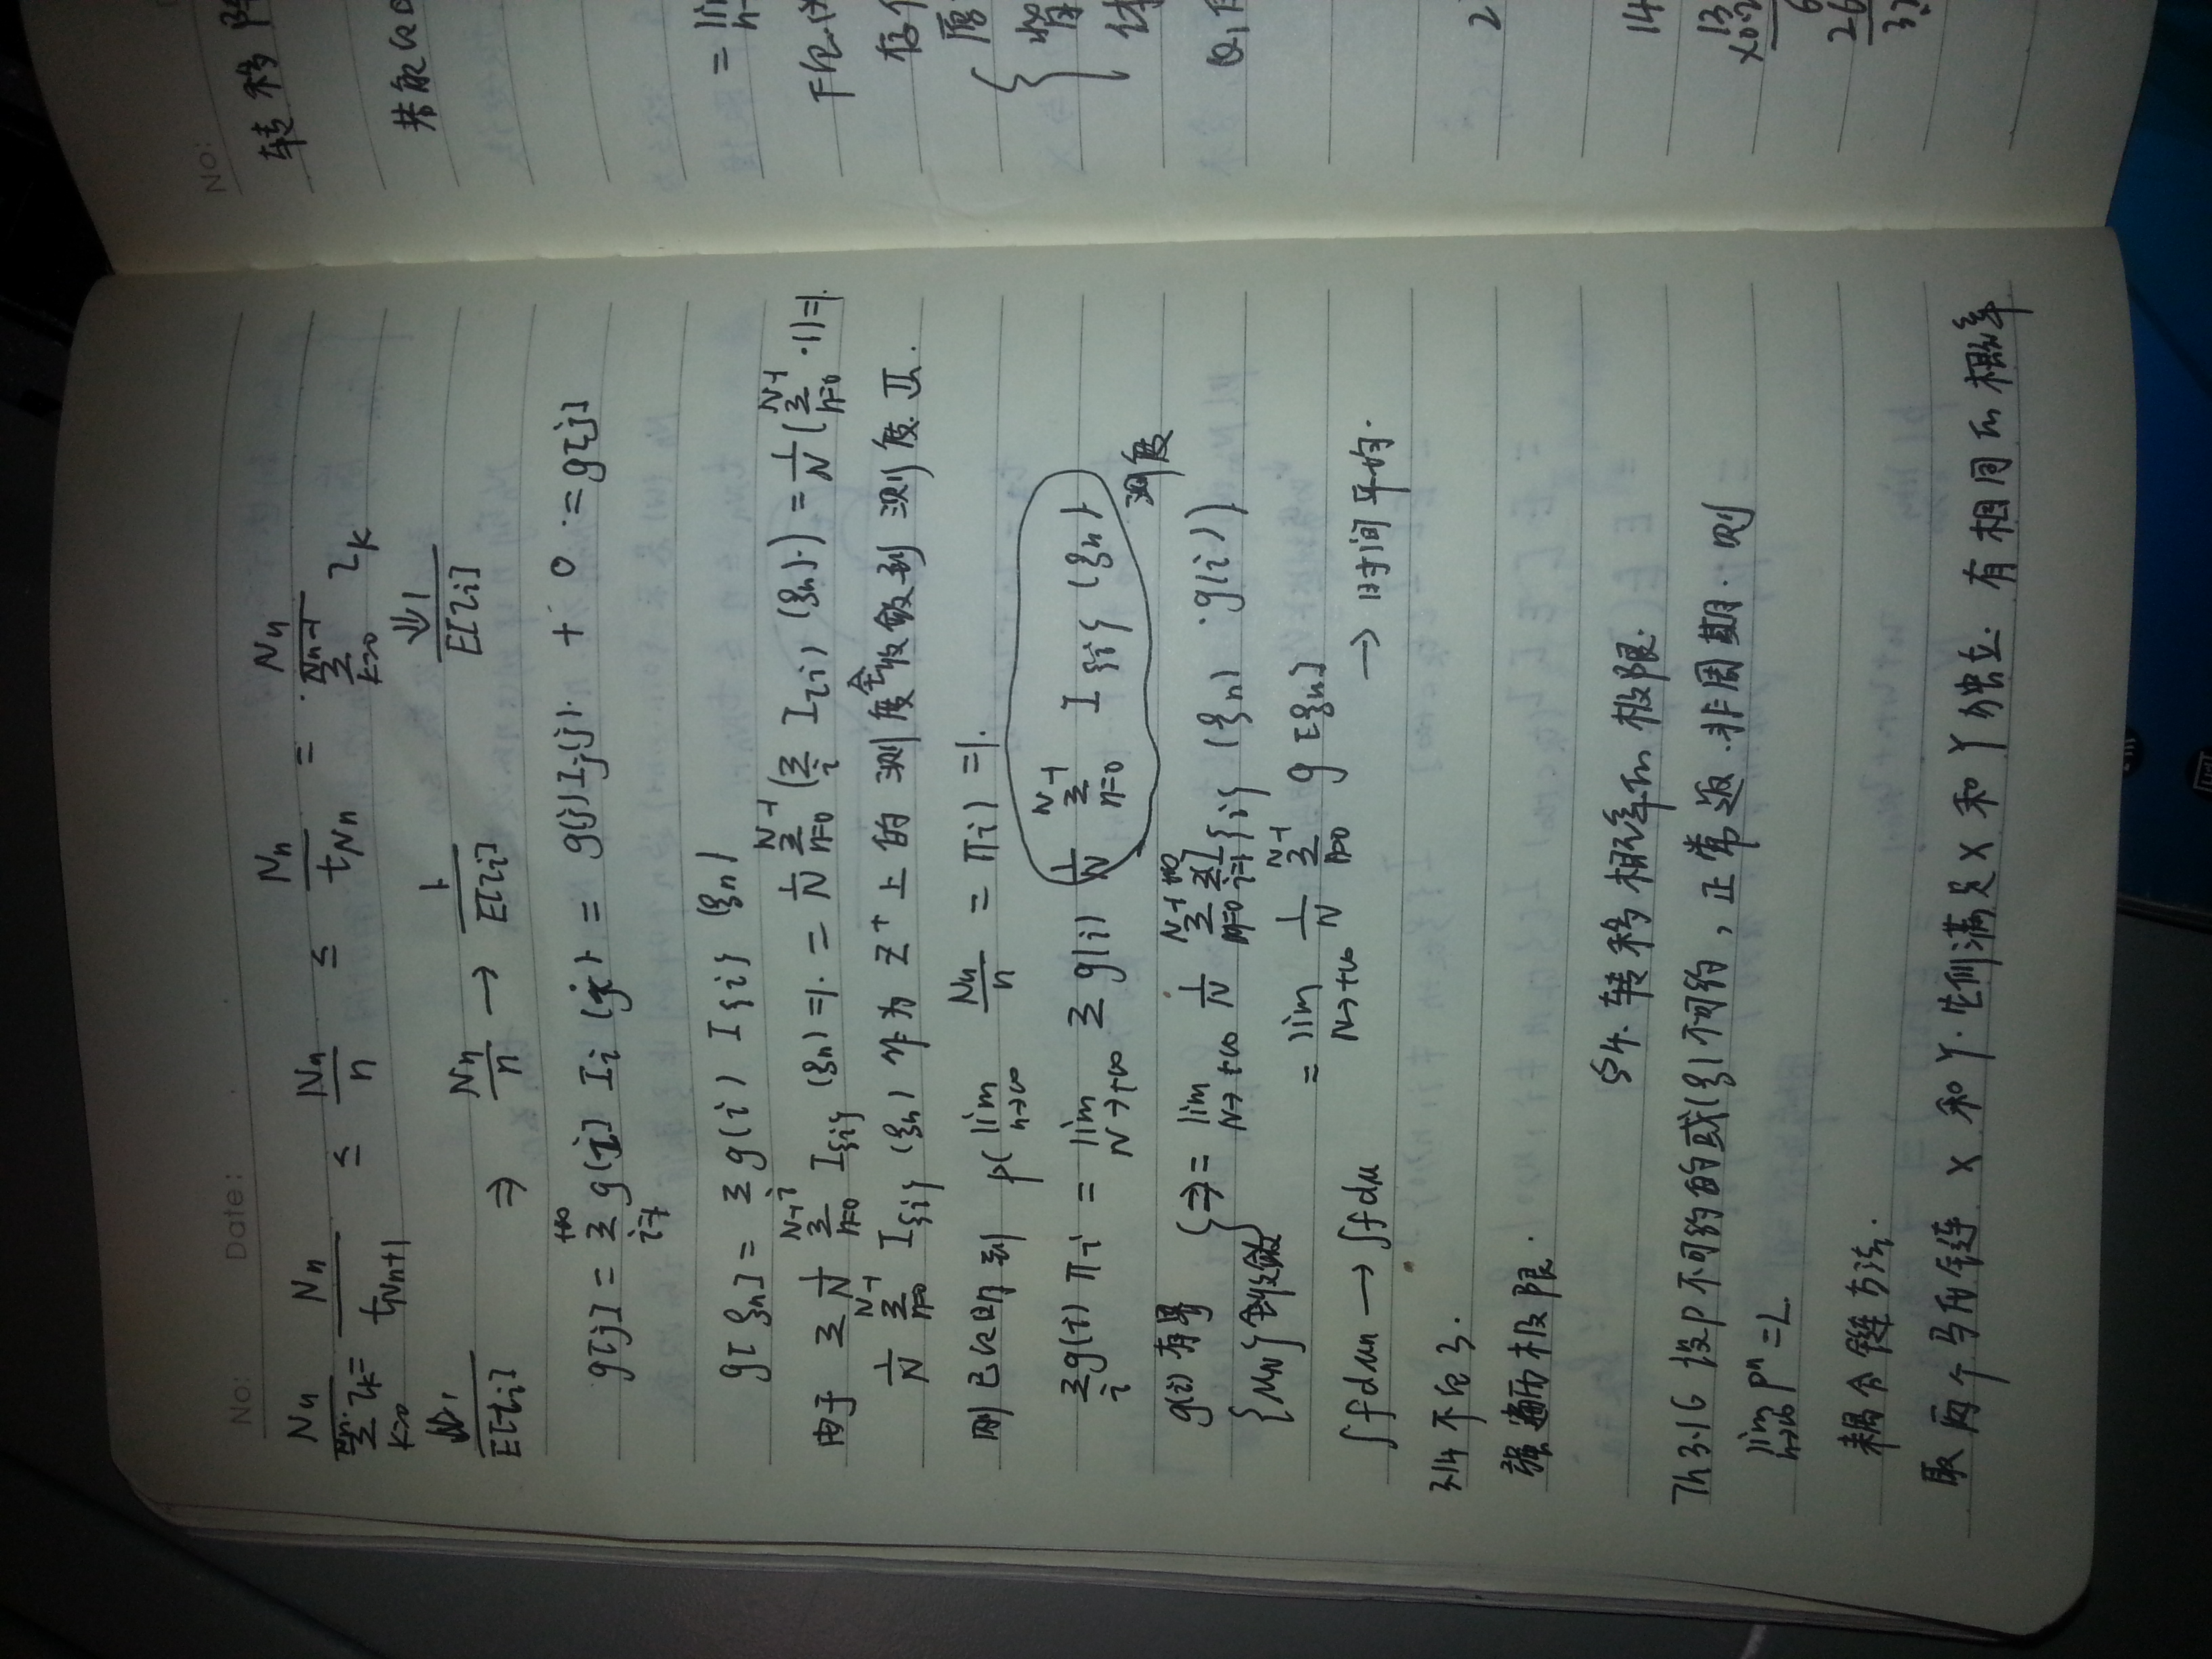 No: Date:
Nn / Σ_{k=0}^{Nn} τk = Nn / t_{Nn+1} ≤ Nn / n ≤ Nn / t_{Nn} = Nn / Σ_{k=0}^{Nn-1} τk
⇓ 1/E[τi] ⇒ Nn/n → 1/E[τi] ⇓ 1/E[τi]
g[j] = Σ_{i=1}^{+∞} g(i] Ii (j) = g(j) Ij(j) + 0 = g[j]
g[ξn] = Σ_i g(i) I{i} (ξn)
由于 Σ_i 1/N Σ_{n=0}^{N-1} I{i} (ξn) = 1. = 1/N Σ_{n=0}^{N-1} (Σ_i I{i} (ξn)) = 1/N (Σ_{n=0}^{N-1} ·1) = 1.
1/N Σ_{n=0}^{N-1} I{i} (ξn) 作为 Z⁺ 上的 测度 全收敛到 测度 Π.
刚已证明到 P( lim_{n→∞} Nn/n = πi) = 1.
Σ_i g(i) πi = lim_{N→+∞} Σ g(i) 1/N Σ_{n=0}^{N-1} I{i} (ξn)
测度
g(i) 有界
{μN} 全收敛 } ⇒ = lim_{N→+∞} 1/N Σ_{n=0}^{N-1} Σ_{i=1}^{+∞} I{i} (ξn) · g(i))
= lim_{N→+∞} 1/N Σ_{n=0}^{N-1} g [ξn]
∫f dμn → ∫f dμ → 时间平均.
3.14 不记了.
强遍历极限.
§4. 转移概率的极限.
Th 3.16 设P不可约的或(ξ)不可约，正常返.非周期. 则
lim_{n→∞} Pⁿ = L
耦合链方法.
取两个马氏链 X 和 Y. 它们满足 X 和 Y 独立. 有相同的概率
No:
转移
= lim
存
2
14
13
6
26